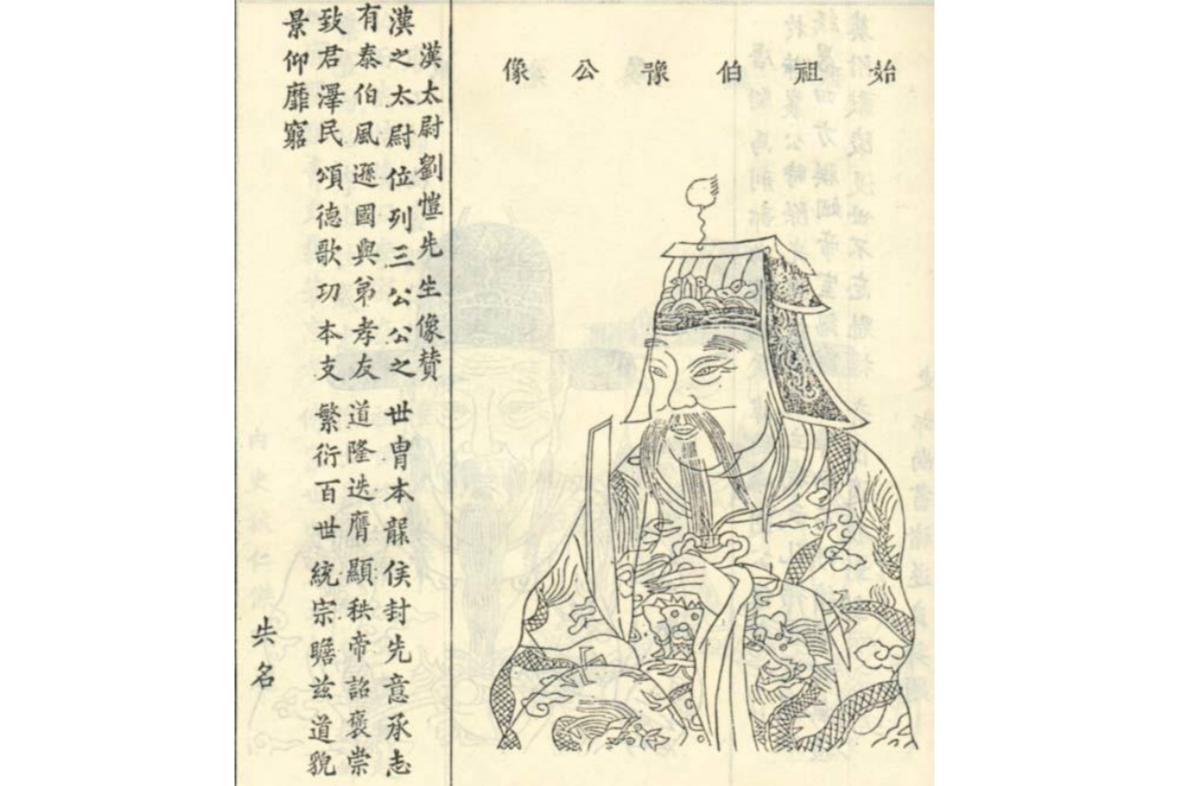 始祖伯豫公像
漢太尉劉愷先生像賛
漢之太尉位列三公公之世冑本侯封先意承志
有泰伯風遜國與弟孝友道隆迭膺顯秩帝詔褒崇
致君澤民頌德歌功本支繁衍百世統宗瞻兹道貌
景仰靡窮
失名